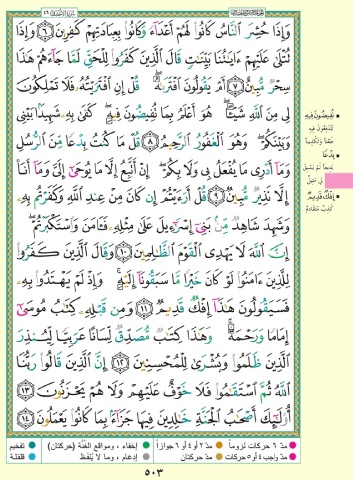 وَإِذَا حُشِرَ ٱلنَّاسُ كَانُوا۟ لَهُمْ أَعْدَآءً وَكَانُوا۟ بِعِبَادَتِهِمْ كَٰفِرِينَ ٦ وَإِذَا
تُتْلَىٰ عَلَيْهِمْ ءَايَٰتُنَا بَيِّنَٰتٍ قَالَ ٱلَّذِينَ كَفَرُوا۟ لِلْحَقِّ لَمَّا جَآءَهُمْ هَٰذَا
سِحْرٌ مُّبِينٌ ٧ أَمْ يَقُولُونَ ٱفْتَرَىٰهُ ۖ قُلْ إِنِ ٱفْتَرَيْتُهُۥ فَلَا تَمْلِكُونَ
لِى مِنَ ٱللَّهِ شَيْـًٔا ۖ هُوَ أَعْلَمُ بِمَا تُفِيضُونَ فِيهِ ۖ كَفَىٰ بِهِۦ شَهِيدًۢا بَيْنِى
وَبَيْنَكُمْ ۖ وَهُوَ ٱلْغَفُورُ ٱلرَّحِيمُ ٨ قُلْ مَا كُنتُ بِدْعًا مِّنَ ٱلرُّسُلِ
وَمَآ أَدْرِى مَا يُفْعَلُ بِى وَلَا بِكُمْ ۖ إِنْ أَتَّبِعُ إِلَّا مَا يُوحَىٰٓ إِلَىَّ وَمَآ أَنَا۠
إِلَّا نَذِيرٌ مُّبِينٌ ٩ قُلْ أَرَءَيْتُمْ إِن كَانَ مِنْ عِندِ ٱللَّهِ وَكَفَرْتُم بِهِۦ
وَشَهِدَ شَاهِدٌ مِّنۢ بَنِىٓ إِسْرَٰٓءِيلَ عَلَىٰ مِثْلِهِۦ فَـَٔامَنَ وَٱسْتَكْبَرْتُمْ ۖ
إِنَّ ٱللَّهَ لَا يَهْدِى ٱلْقَوْمَ ٱلظَّٰلِمِينَ ١٠ وَقَالَ ٱلَّذِينَ كَفَرُوا۟
لِلَّذِينَ ءَامَنُوا۟ لَوْ كَانَ خَيْرًا مَّا سَبَقُونَآ إِلَيْهِ ۚ وَإِذْ لَمْ يَهْتَدُوا۟ بِهِۦ
فَسَيَقُولُونَ هَٰذَآ إِفْكٌ قَدِيمٌ ١١ وَمِن قَبْلِهِۦ كِتَٰبُ مُوسَىٰٓ
إِمَامًا وَرَحْمَةً ۚ وَهَٰذَا كِتَٰبٌ مُّصَدِّقٌ لِّسَانًا عَرَبِيًّا لِّيُنذِرَ
ٱلَّذِينَ ظَلَمُوا۟ وَبُشْرَىٰ لِلْمُحْسِنِينَ ١٢ إِنَّ ٱلَّذِينَ قَالُوا۟ رَبُّنَا
ٱللَّهُ ثُمَّ ٱسْتَقَٰمُوا۟ فَلَا خَوْفٌ عَلَيْهِمْ وَلَا هُمْ يَحْزَنُونَ ١٣
أُو۟لَٰٓئِكَ أَصْحَٰبُ ٱلْجَنَّةِ خَٰلِدِينَ فِيهَا جَزَآءًۢ بِمَا كَانُوا۟ يَعْمَلُونَ ١٤
تُفِيضُونَ فِيهِ
بِدْعًا
إِفْكٌ قَدِيمٌ
كذب متقادم
مدّ ٦ حركات لزوماً
مدّ ٢ أو ٤ أو ٦ جوازاً
إخفاء، ومواقع الغنّة (حركتان)
تفخيم
مدّ واجب ٤ أو ٥ حركات
مدّ حركتان
إدغام، وما لا يُلفظ
قلقلة
٥٠٣